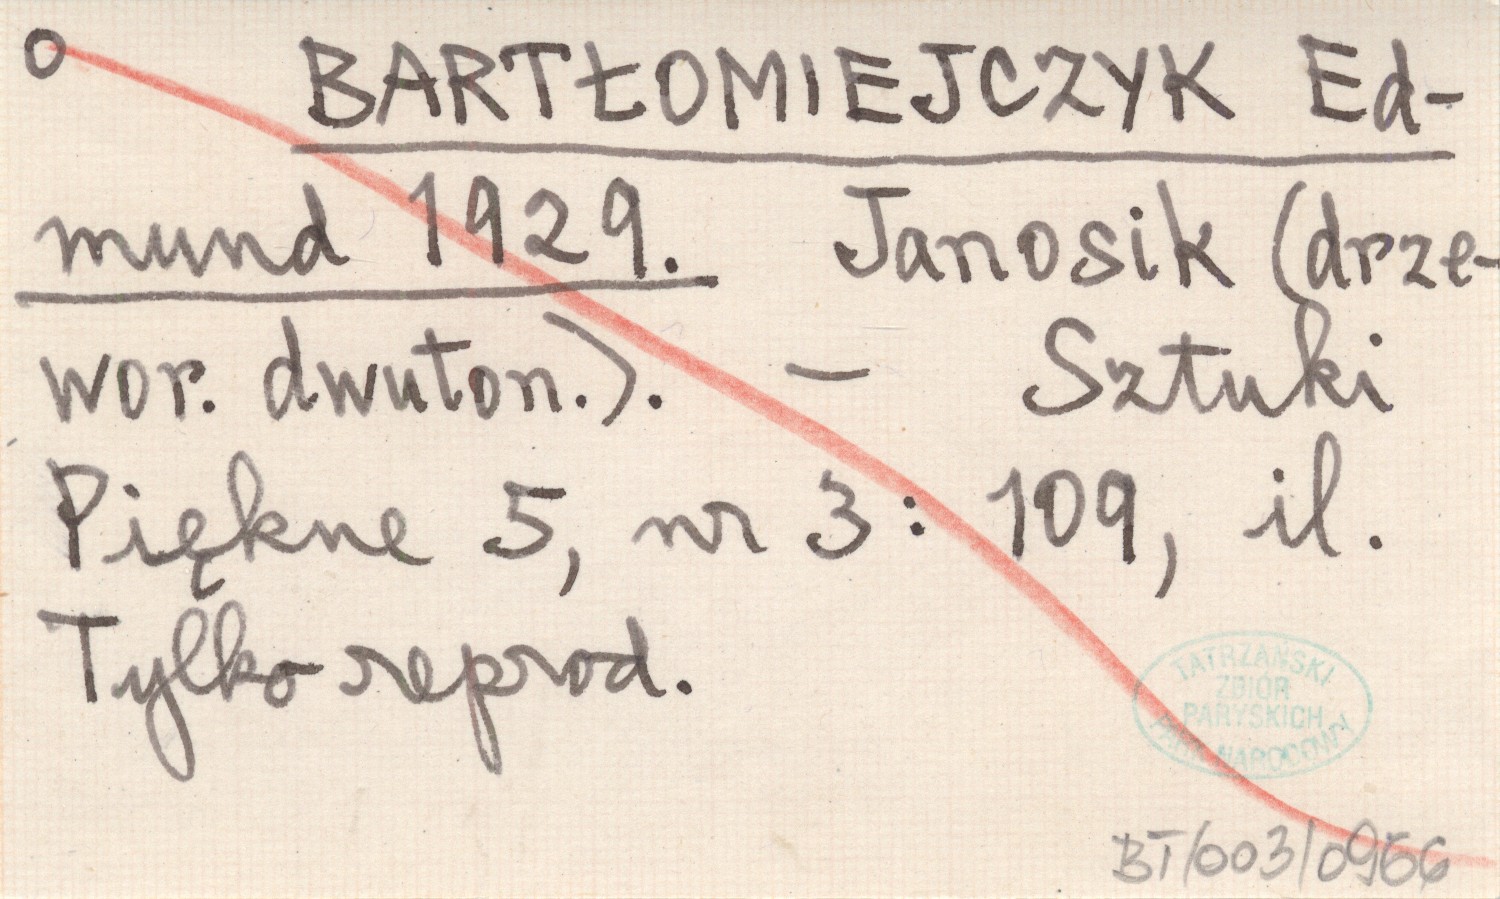 o BARTŁOMIEJCZYK Ed-
mund 1929. Janosik (drze-
wor. dwuton.). – Sztuki
Piękne 5, nr 3: 109, il.
Tylko reprod.
TATRZAŃSKI
ZBIÓR
PARYSKICH
PARK NARODOWY
BT/003/0966